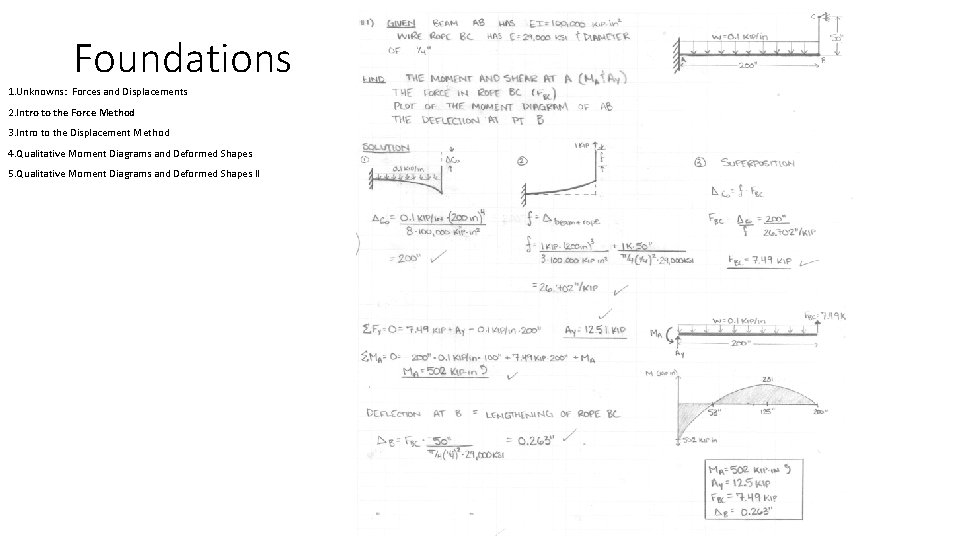 Foundations
1.Unknowns: Forces and Displacements
2.Intro to the Force Method
3.Intro to the Displacement Method
4.Qualitative Moment Diagrams and Deformed Shapes
5.Qualitative Moment Diagrams and Deformed Shapes II
GIVEN BEAM AB HAS EI=100,000 KIP·in²
WIRE ROPE BC HAS E=29,000 KSI & DIAMETER
OF 1/4"
C
50"
w=0.1 KIP/in
A B
200"
FIND THE MOMENT AND SHEAR AT A (MA & Ay)
THE FORCE IN ROPE BC (FBC)
PLOT OF THE MOMENT DIAGRAM OF AB
THE DEFLECTION AT PT B
SOLUTION
① 0.1 KIP/in ΔC0
② 1 KIP f
③ SUPERPOSITION
ΔC0 = f · FBC
ΔC0 = 0.1 KIP/in · (200 in)⁴
8·100,000 KIP·in²
= 200" ✓
f = Δ beam + rope
f = 1 KIP·(200 in)³ + 1K·50"
3·100,000 KIP·in² π/4(1/4)²·29,000KSI
= 26.702"/KIP ✓
= 200"
f 26.702"/KIP
FBC = 7.49 KIP ✓
ΣFy=0= 7.49 KIP + Ay - 0.1 KIP/in·200" Ay = 12.51 KIP ✓
ΣMA=0= -200"·0.1 KIP/in·100" + 7.49 KIP·200" + MA
MA=502 KIP-in ✓
w=0.1 KIP/in FBC=7.49K
MA
Ay
200"
M (KIP·in)
281
58" 125" 200"
502 KIP in
DEFLECTION AT B = LENGTHENING OF ROPE BC
ΔB = FBC · 50" = 0.263" ✓
π/4(1/4)²·29,000KSI
MA=502 KIP-IN
Ay = 12.5 KIP
FBC = 7.49 KIP
ΔB = 0.263"